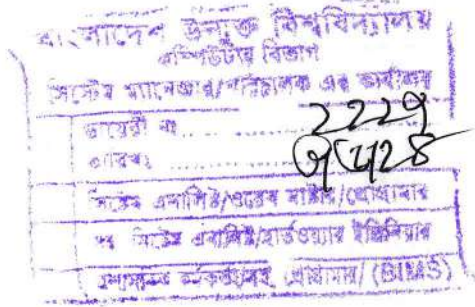 বাংলাদেশ উন্মুক্ত বিশ্ববিদ্যালয়
কম্পিউটার বিভাগ
সিস্টেম ম্যানেজার/পরিচালক এর কার্যালয়
ডায়েরী নং
তারিখ
সিস্টেম এনালিষ্ট/ওয়েব মাষ্টার/প্রোগ্রামার
সিস্টেম এনালিষ্ট/হার্ডওয়্যার ইঞ্জিনিয়ার
প্রোগ্রামার/ (BIMS)